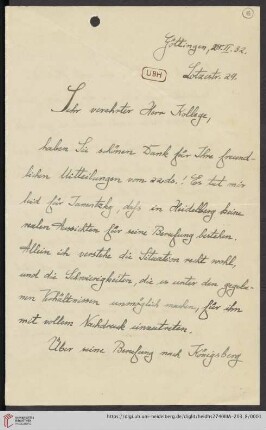 Göttingen, II. 32.
Lotzestr. 29.
UBH
Sehr verehrter Herr Kollege,
haben Sie schönen Dank für Ihre freund-
lichen Mitteilungen vom! Es tut mir
leid für, daß in Heidelberg keine
realen Aussichten für seine Berufung bestehen.
Allein ich verstehe die Situation recht wohl,
und die Schwierigkeiten, die es unter den gegebe-
nen Verhältnissen unmöglich machen, für ihn
mit vollem Nachdruck einzutreten.
Über seine Berufung nach Königsberg
UNIVERSITÄTS-
BIBLIOTHEK
HEIDELBERG